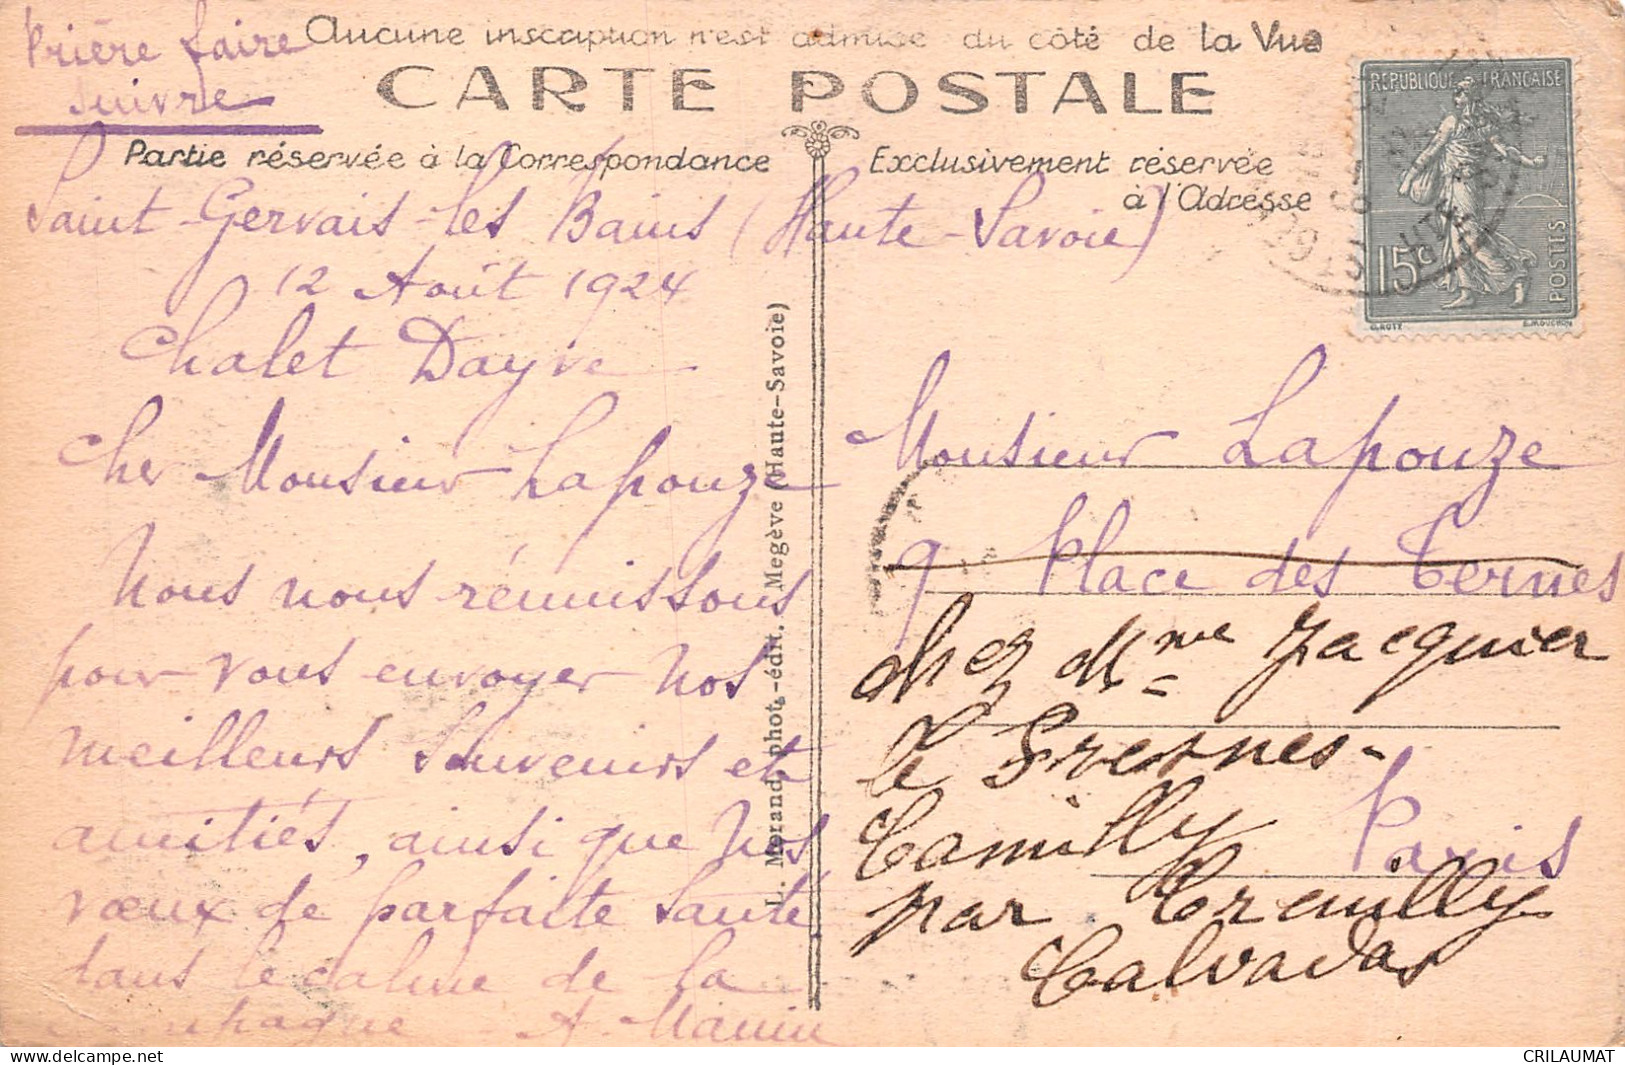 Prière faire
suivre
Aucune inscription n'est admise du côté de la Vue
CARTE POSTALE
Partie réservée à la Correspondance
Exclusivement réservée
à l'Adresse
REPUBLIQUE FRANÇAISE
15c
POSTES
O.ROTY
E.MOUCHON
Saint-Gervais-les Bains (Haute-Savoie)
12 Août 1924
Chalet Dayve -
Cher Monsieur Lapouze
Nous nous réunissons
pour vous envoyer nos
meilleurs souvenirs et
amitiés, ainsi que nos
vœux de parfaite santé
dans le calme de la
campagne - A. Manin
L. Morand, phot.-édit. Megève (Haute-Savoie)
Monsieur Lapouze
9 Place des Ternes
chez Mme Jacquier
Le Fresnes-
Camilly
Paris
par Creully
Calvados
CRILAUMAT
https://www.delcampe.net